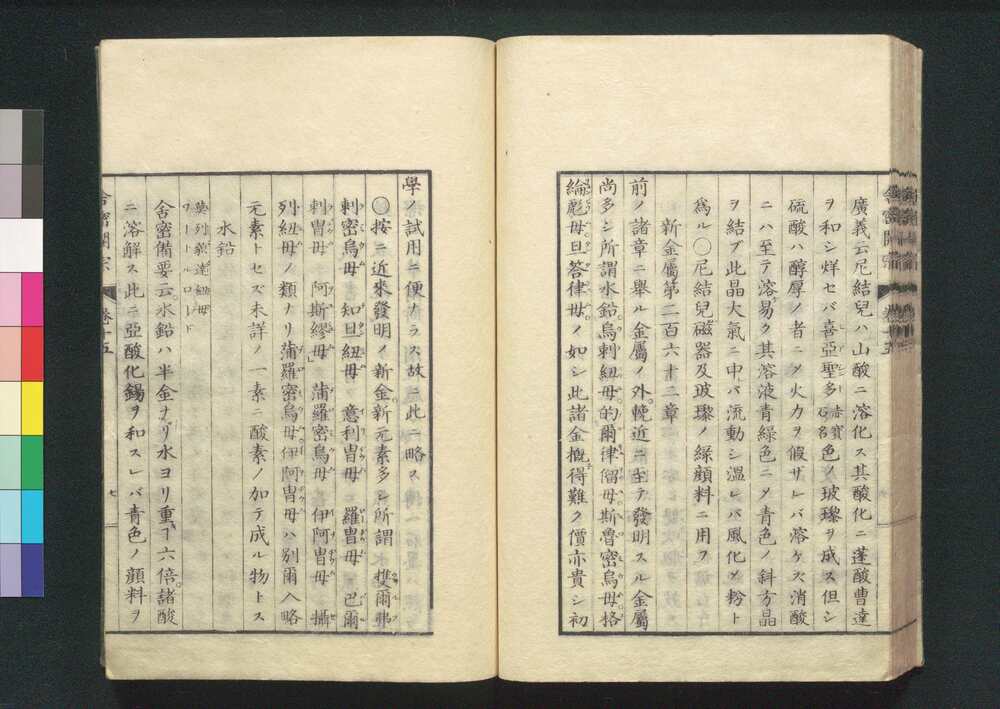 廣義云尼結兒ハ山酸ニ溶化ス其酸化ニ蓬酸曹達
ヲ和シ烊セバ喜亞聖多赤寶石名色ノ玻瓈ヲ成ス但シ
硫酸ハ醇厚ノ者ニメ火力ヲ假ザレバ溶ケズ消酸
ニハ至テ溶易ク其溶液青緑色ニメ青色ノ斜方晶
ヲ結ブ此晶大氣ニ中バ流動シ温レバ風化メ粉ト
爲ル〇尼結兒磁器及玻瓈ノ緑顔料ニ用フ
新金屬第二百六十三章
前ノ諸章ニ舉ル金屬ノ外輓近ニ至テ發明スル金屬
尚多シ所謂水鉛烏刺紐母的爾律僧母斯魯密烏母格
綸彪母旦答律母ノ如シ此諸金概得難ク價亦貴シ初
學ノ試用ニ便ナラス故ニ此ニ略ス
〇按ニ近來發明ノ新金新元素多シ所謂 㩳爾弗
剌密烏母 知旦紐母 意利胄母 羅胄母 巴爾
剌胄母 阿斯繆母 蒲羅密烏母 伊阿胄母 攝
列紐母ノ類ナリ蒲羅密烏母伊阿胄母ハ別爾入略
元素トセズ未詳ノ一素ニ酸素ノ加テ成ル物トス
水鉛
莫列貌達紐母
ワートルロード
舎密備要云水鉛ハ半金ナリ水ヨリ重丁六倍諸酸
ニ溶解ス此ニ亞酸化錫ヲ和スレバ青色ノ顔料ヲ
舎密開宗 巻十五 七